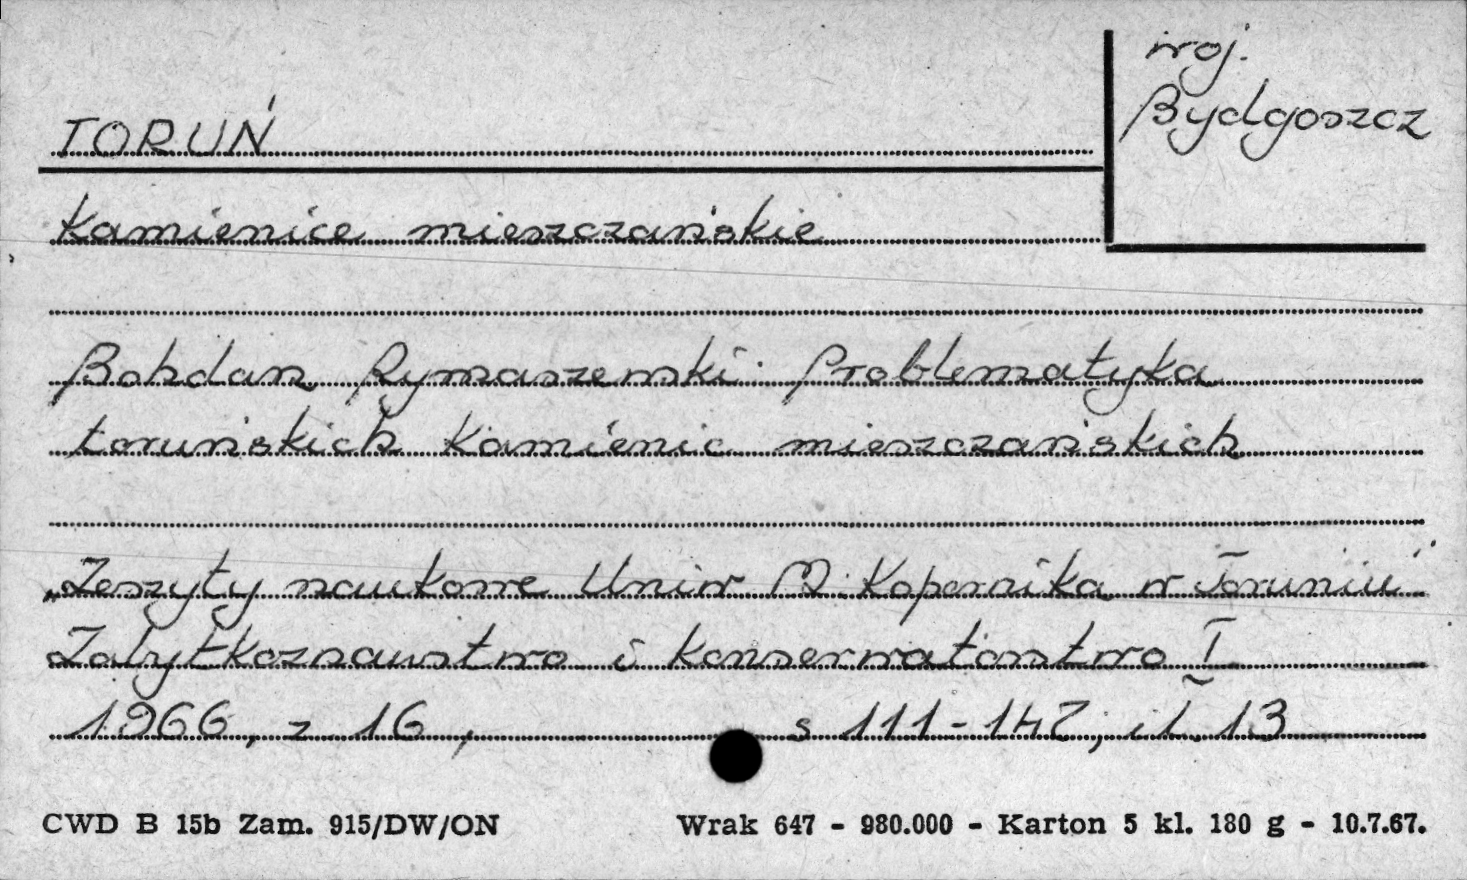 woj.
Bydgoszcz
TORUŃ
Kamienice mieszczańskie
Bohdan Rymaszewski. Problematyka
toruńskich Kamienic mieszczańskich
„Zeszyty naukowe Uniw M. Kopernika w Toruniu"
Zabytkoznawstwo i konserwatorstwo I
1966, z 16, s 111-147; il. 13
CWD B 15b Zam. 915/DW/ON Wrak 647 - 980.000 - Karton 5 kl. 180 g - 10.7.67.